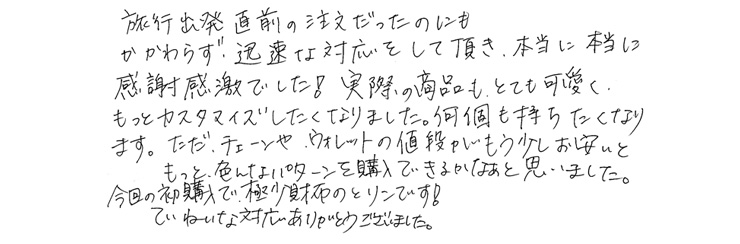 旅行出発直前の注文だったのにも
かかわらず、迅速な対応をして頂き、本当に本当に
感謝感激でした！実際の商品も、とても可愛く、
もっとカスタマイズしたくなりました。何個も持ちたくなり
ます。ただ、チェーンや、ウォレットの値段がもう少しお安いと
もっと、色んなパターンを購入できるかなぁと思いました。
今回の初購入で、極少財布のとリンです！
ていねいな対応ありがとうございました。